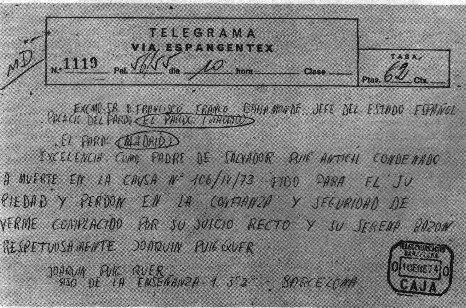 TELEGRAMA
VIA ESPANGENTEX
MD
N.º 1119 Pal. 56/55 día 10 hora Clase
TASA,
Ptas. 62 Cts.
EXCMO SR D. FRANCISCO FRANCO BAHAMONDE JEFE DEL ESTADO ESPAÑOL
PALACIO DEL PARDO EL PARDO (MADRID)
EL PARDO (MADRID)
EXCELENCIA COMO PADRE DE SALVADOR PUIG ANTICH CONDENADO
A MUERTE EN LA CAUSA Nº 106/IV/73 PIDO PARA EL SU
PIEDAD Y PERDON EN LA CONFIANZA Y SEGURIDAD DE
VERME COMPLACIDO POR SU JUICIO RECTO Y SU SERENA RAZON
RESPETUOSAMENTE JOAQUIN PUIG QUER
JOAQUIN PUIG QUER
PSO DE LA ENSEÑANZA 1 3º 2ª BARCELONA
BARCELONA
ENE 74
CAJA